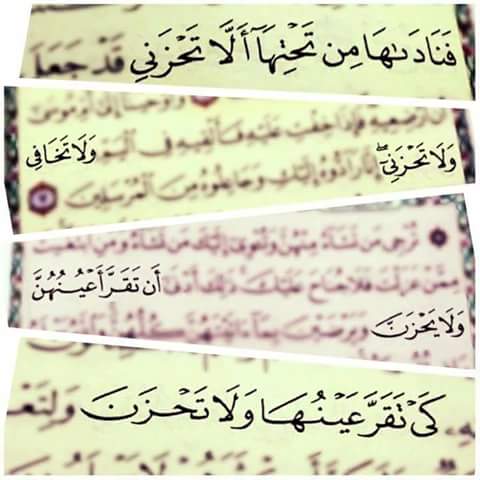 فَنَادَىٰهَا مِن تَحْتِهَآ أَلَّا تَحْزَنِي قَدْ جَعَلَ
أَرْضِعِيهِ فَإِذَا خِفْتِ عَلَيْهِ فَأَلْقِيهِ فِي الْيَمِّ وَلَا تَخَافِي
وَلَا تَحْزَنِيٓ إِنَّا رَادُّوهُ إِلَيْكِ وَجَاعِلُوهُ مِنَ الْمُرْسَلِينَ
تُرْجِي مَن تَشَاءُ مِنْهُنَّ وَتُـْٔوِي إِلَيْكَ مَن تَشَاءُ وَمَنِ ابْتَغَيْتَ
مِمَّنْ عَزَلْتَ فَلَا جُنَاحَ عَلَيْكَ ذَٰلِكَ أَدْنَىٰ أَن تَقَرَّ أَعْيُنُهُنَّ
وَلَا يَحْزَنَّ وَيَرْضَيْنَ بِمَا ءَاتَيْتَهُنَّ كُلُّهُنَّ
كَيْ تَقَرَّ عَيْنُهَا وَلَا تَحْزَنَ